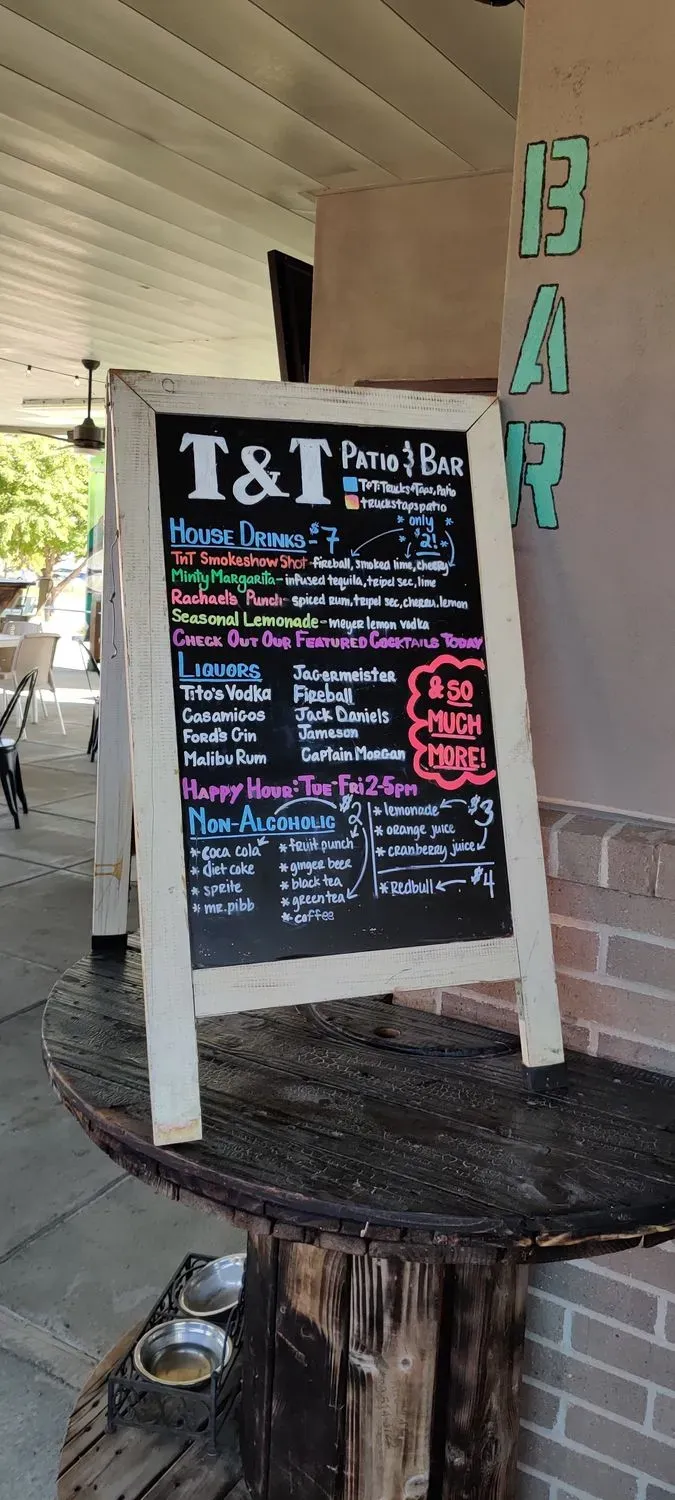 T&T PATIO & BAR
T&T: Trucks&Taps, Patio
truckstapspatio
HOUSE DRINKS - $7
* only *
* $2! *
TnT Smokeshow Shot - fireball, smoked lime, cherry
Minty Margarita - infused tequila, tripel sec, lime
Rachael's Punch - spiced rum, tripel sec, cherry, lemon
Seasonal Lemonade - meyer lemon vodka
CHECK OUT OUR FEATURED COCKTAILS TODAY
LIQUORS
Tito's Vodka
Casamigos
Ford's Gin
Malibu Rum
Jagermeister
Fireball
Jack Daniels
Jameson
Captain Morgan
& SO
MUCH
MORE!
HAPPY HOUR: TUE-FRI 2-5PM
NON-ALCOHOLIC $2
* coca cola
* diet coke
* sprite
* mr.pibb
* fruit punch
* ginger beer
* black tea
* green tea
* coffee
* lemonade $3
* orange juice
* cranberry juice
* Redbull $4
BAR